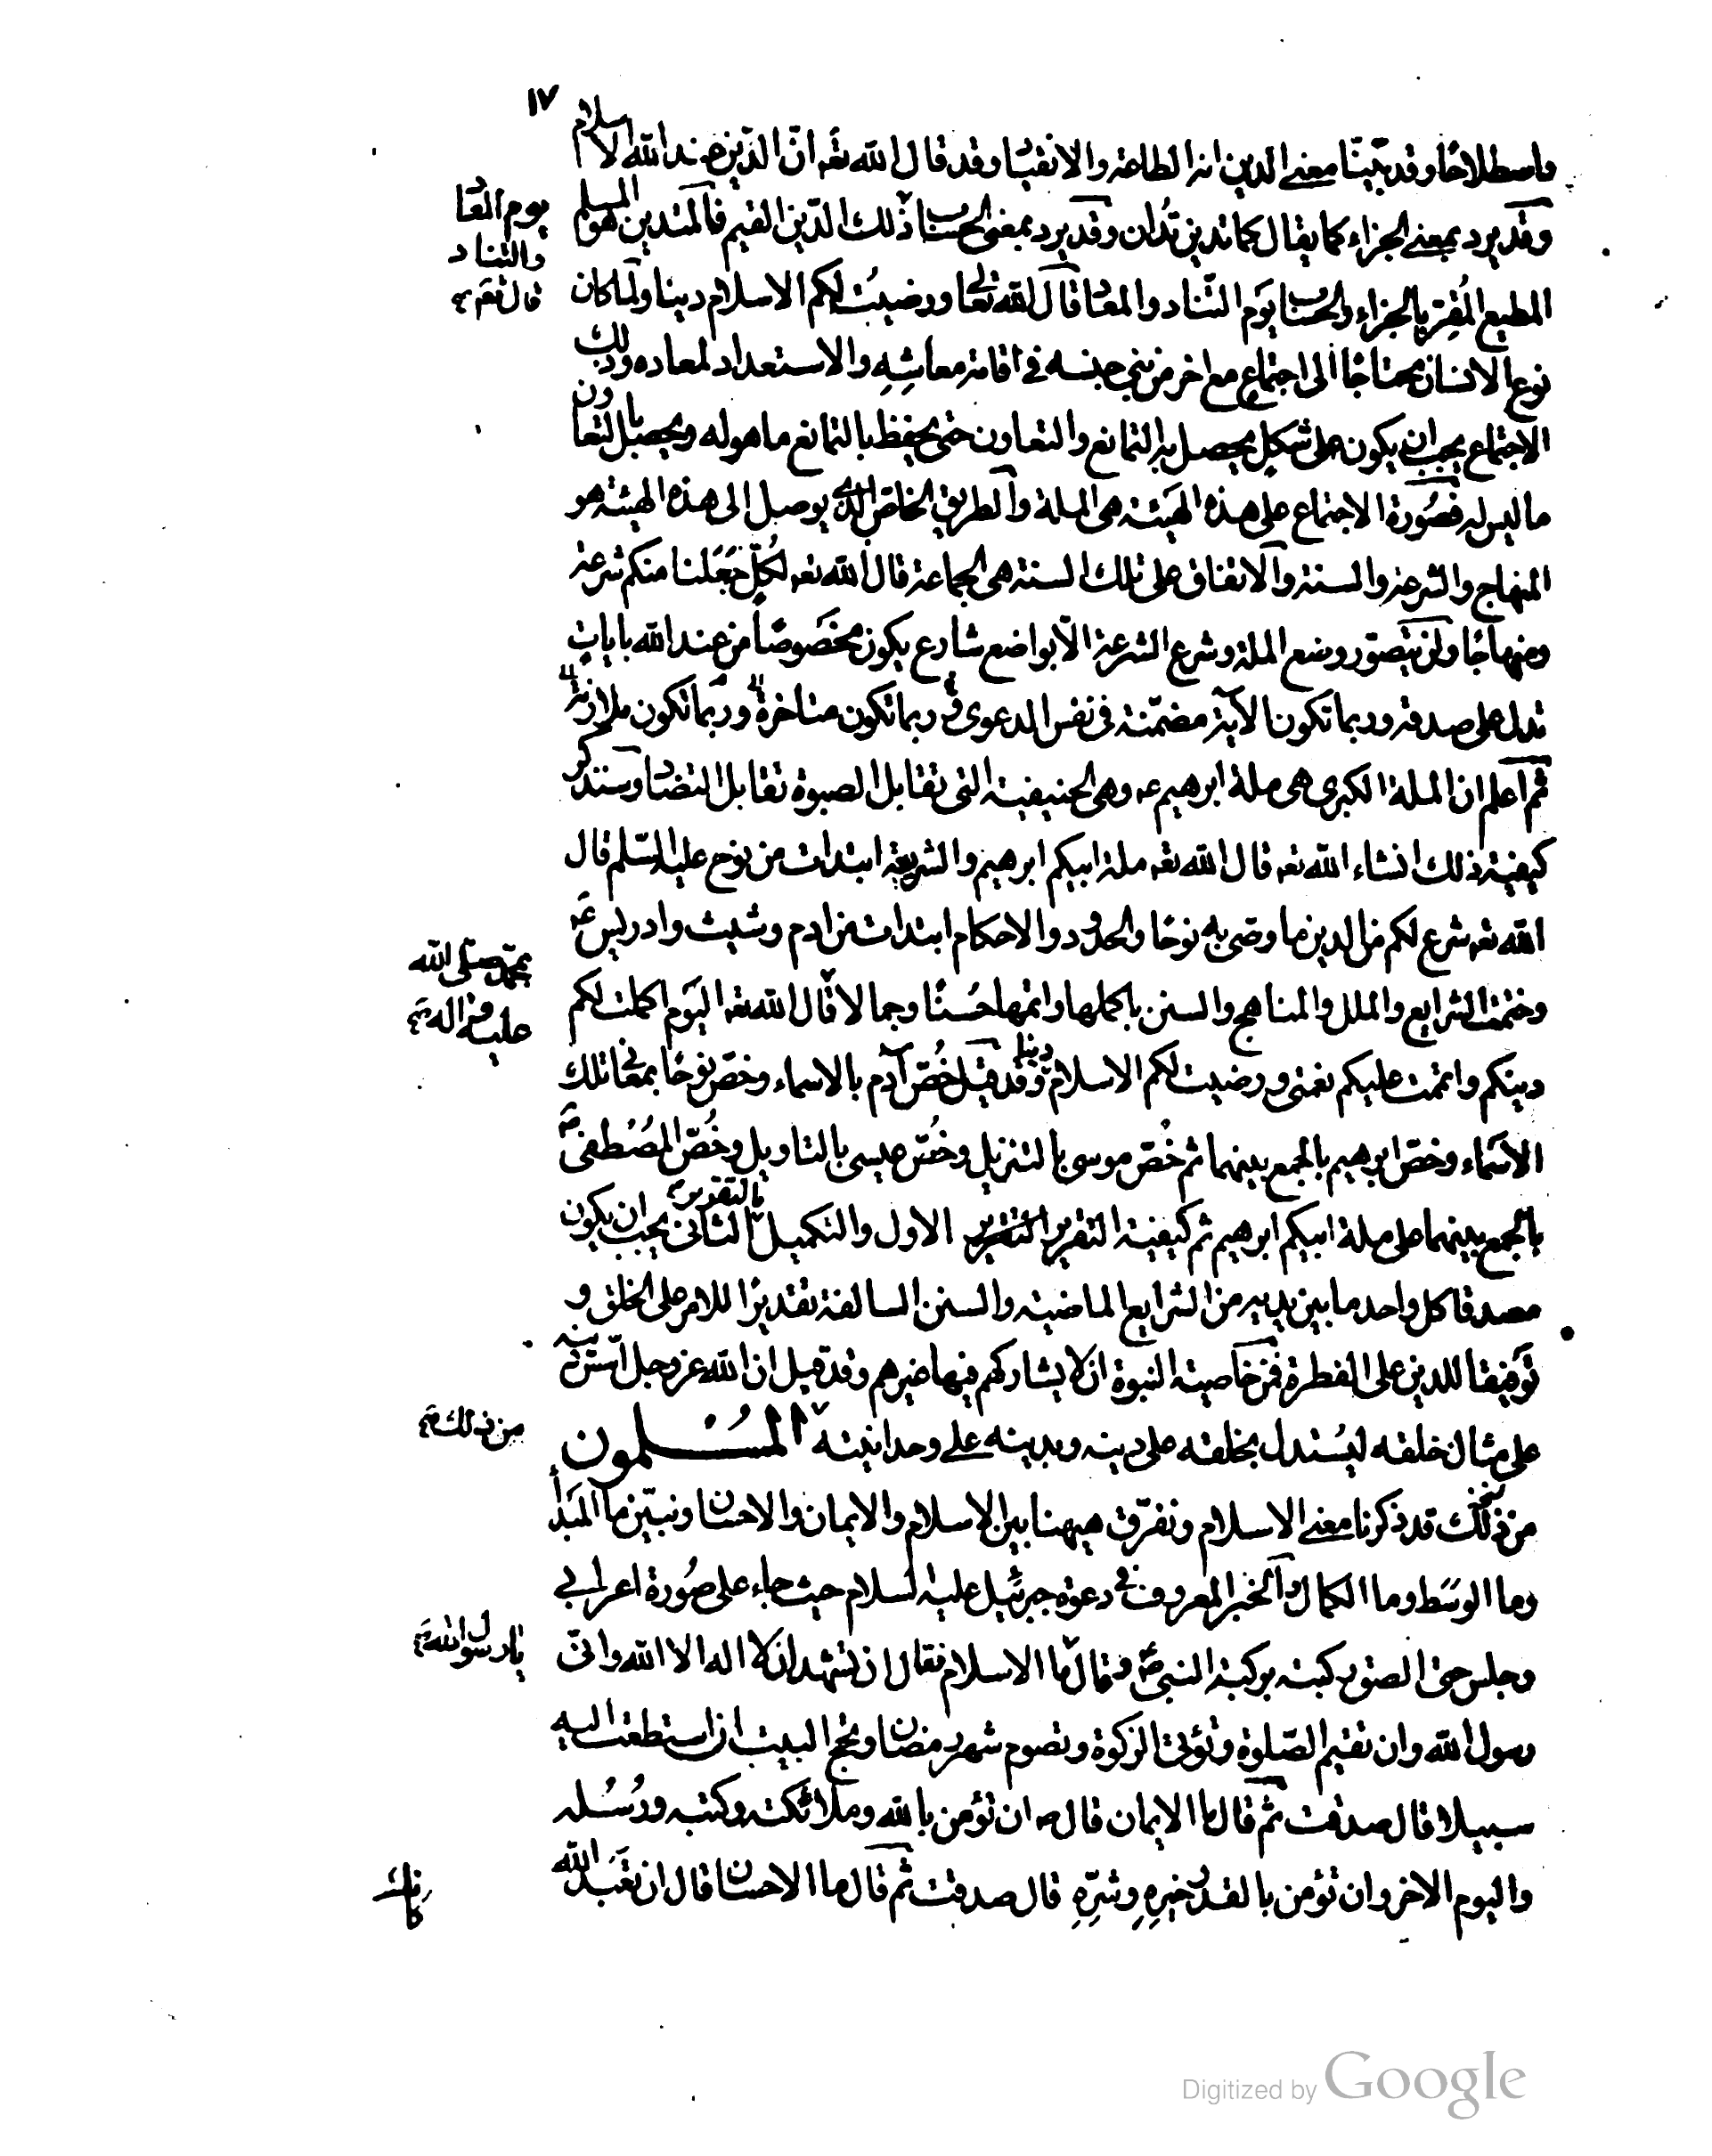 ١٧
واصطلاحًا وقد بيّنّا معنى الدين انه الطاعة والانقياد وقد قال الله تعه انّ الدّين عند الله الاسلام
وقد يرد بمعنى الجزاء كما يقال كما تدين تُدان وقد يرد بمعنى الحساب ذلك الدّين القيم فالمتدين هو المسلم
يوم المعاد
والتناد
المطيع المُقِرّ بالجزاء والحساب يوَم التّناد والمعاد قال الله تعالى ورضيتُ لكم الاسلام دينا ولما كان
قال نعم
نوع الانسان محتاجًا الى اجتماعٍ مع اخر من بنى جنسه فى اقامة معاشِهِ والاستعداد لمعاده وذلك
الاجتماع يجب ان يكون على شكلٍ يحصل به التمانع والتعاون حتى يحفظ بالتمانع ما هو له ويحصل بالتعاون
ما ليس له فصُورة الاجتماع على هذه الهَيئة هى الملة والطريق الخاصّ الذى يوصل الى هذه الهيئة هو
المنهاج والشرعة والسنة والاتفاق على تلك السنة هى الجماعة قال الله تعه لكُلٍّ جَعَلنا منكم شرعة
ومنهاجًا ولن يتصوّر وضع الملة وشرع الشرعة الّا بواضع شارع يكون مخصَوصًا من عند الله باياتٍ
تدل على صدقه وربما تكون الآية مضمّنة فى نفس الدعوى وربما تكون متاخرة وربّما تكون ملازمة
ثم اعلم ان الملة الكبرى هى ملة ابرهيم عه وهى الحنيفية التى تقابل الصبوة تقابل التضاد وسنذكر
كيفية ذلك انشاء الله تعه قال الله تعه ملة ابيكم ابرهيم والشريعة ابتدات من نوح عليه السّلم قال
الله تعه شرع لكم من الدين ما وصّى به نوحًا والحدُود والاحكام ابتدات من ادم وشيث وادريس عَم
بمحمّد صلى الله
وختمت الشرايع والملل والمناهج والسنن باكملها واتمها حُسنًا وجمالا قال الله تعه اليَوم اكملت لكم
عليه واله
دينكم واتممت عليكم نعمتى ورضيت لكم الاسلام دينا وقد قيل خُصّ آدم بالاسماء وخصّ نوحًا بمعانى تلك
الاسَماء وخصّ ابرهيم بالجمع بينهما ثم خُصّ موسى بالتنزيل وخُصّ عيسى بالتاويل وخُصّ المصُطفى
بالجمع بينهما على ملة ابيكم ابرهيم ثم كيفية التقرير التقرير الاول والتكميل بالتقرير الثانى يجب ان يكون
مصدقا كل واحد ما بين يديه من الشرايع الماضية والسنن السالفة تقديرًا للامر على الخلق و
توَفيقا للدين على الفطرة فمن خاصية النبوة ان لا يشاركهم فيها غيرهم وقد قيل ان الله عز وجل اسّس دينه
على مثال خلقه ليُستدل بخلقه على دينه وبدينه على وحدانيته المُسلمون
من ذلك
من ذلك قد ذكرنا معنى الاسلام ونفرّق هيهنا بين الاسلام والايمان والاحسان ونبيّن ما المَبدأ
وما الوسَط وما الكمال والخبر المعروف فى دعوة جبرئيل عليه السلام حيث جاء على صُورة اعرابى
وجلس حتى الصق ركبته بركبة النبى وقال ما الاسلام فقال ان تشهد ان لا اله الا الله وانّى
يا رسول الله
رسول الله وان تقيم الصّلوة وتؤتى الزكوة وتصوم شهر رمضان وتحج البيت ان استطعت اليه
سبيلا قال صدقت ثم قال ما الايمان قال ان تؤمن بالله وملائكته وكتبه ورُسُله
واليوم الاخر وان تؤمن بالقدر خيرِهِ وشرِّهِ قال صدقت ثم قال ما الاحسان قال ان تعَبد الله
كانك
Digitized by Google